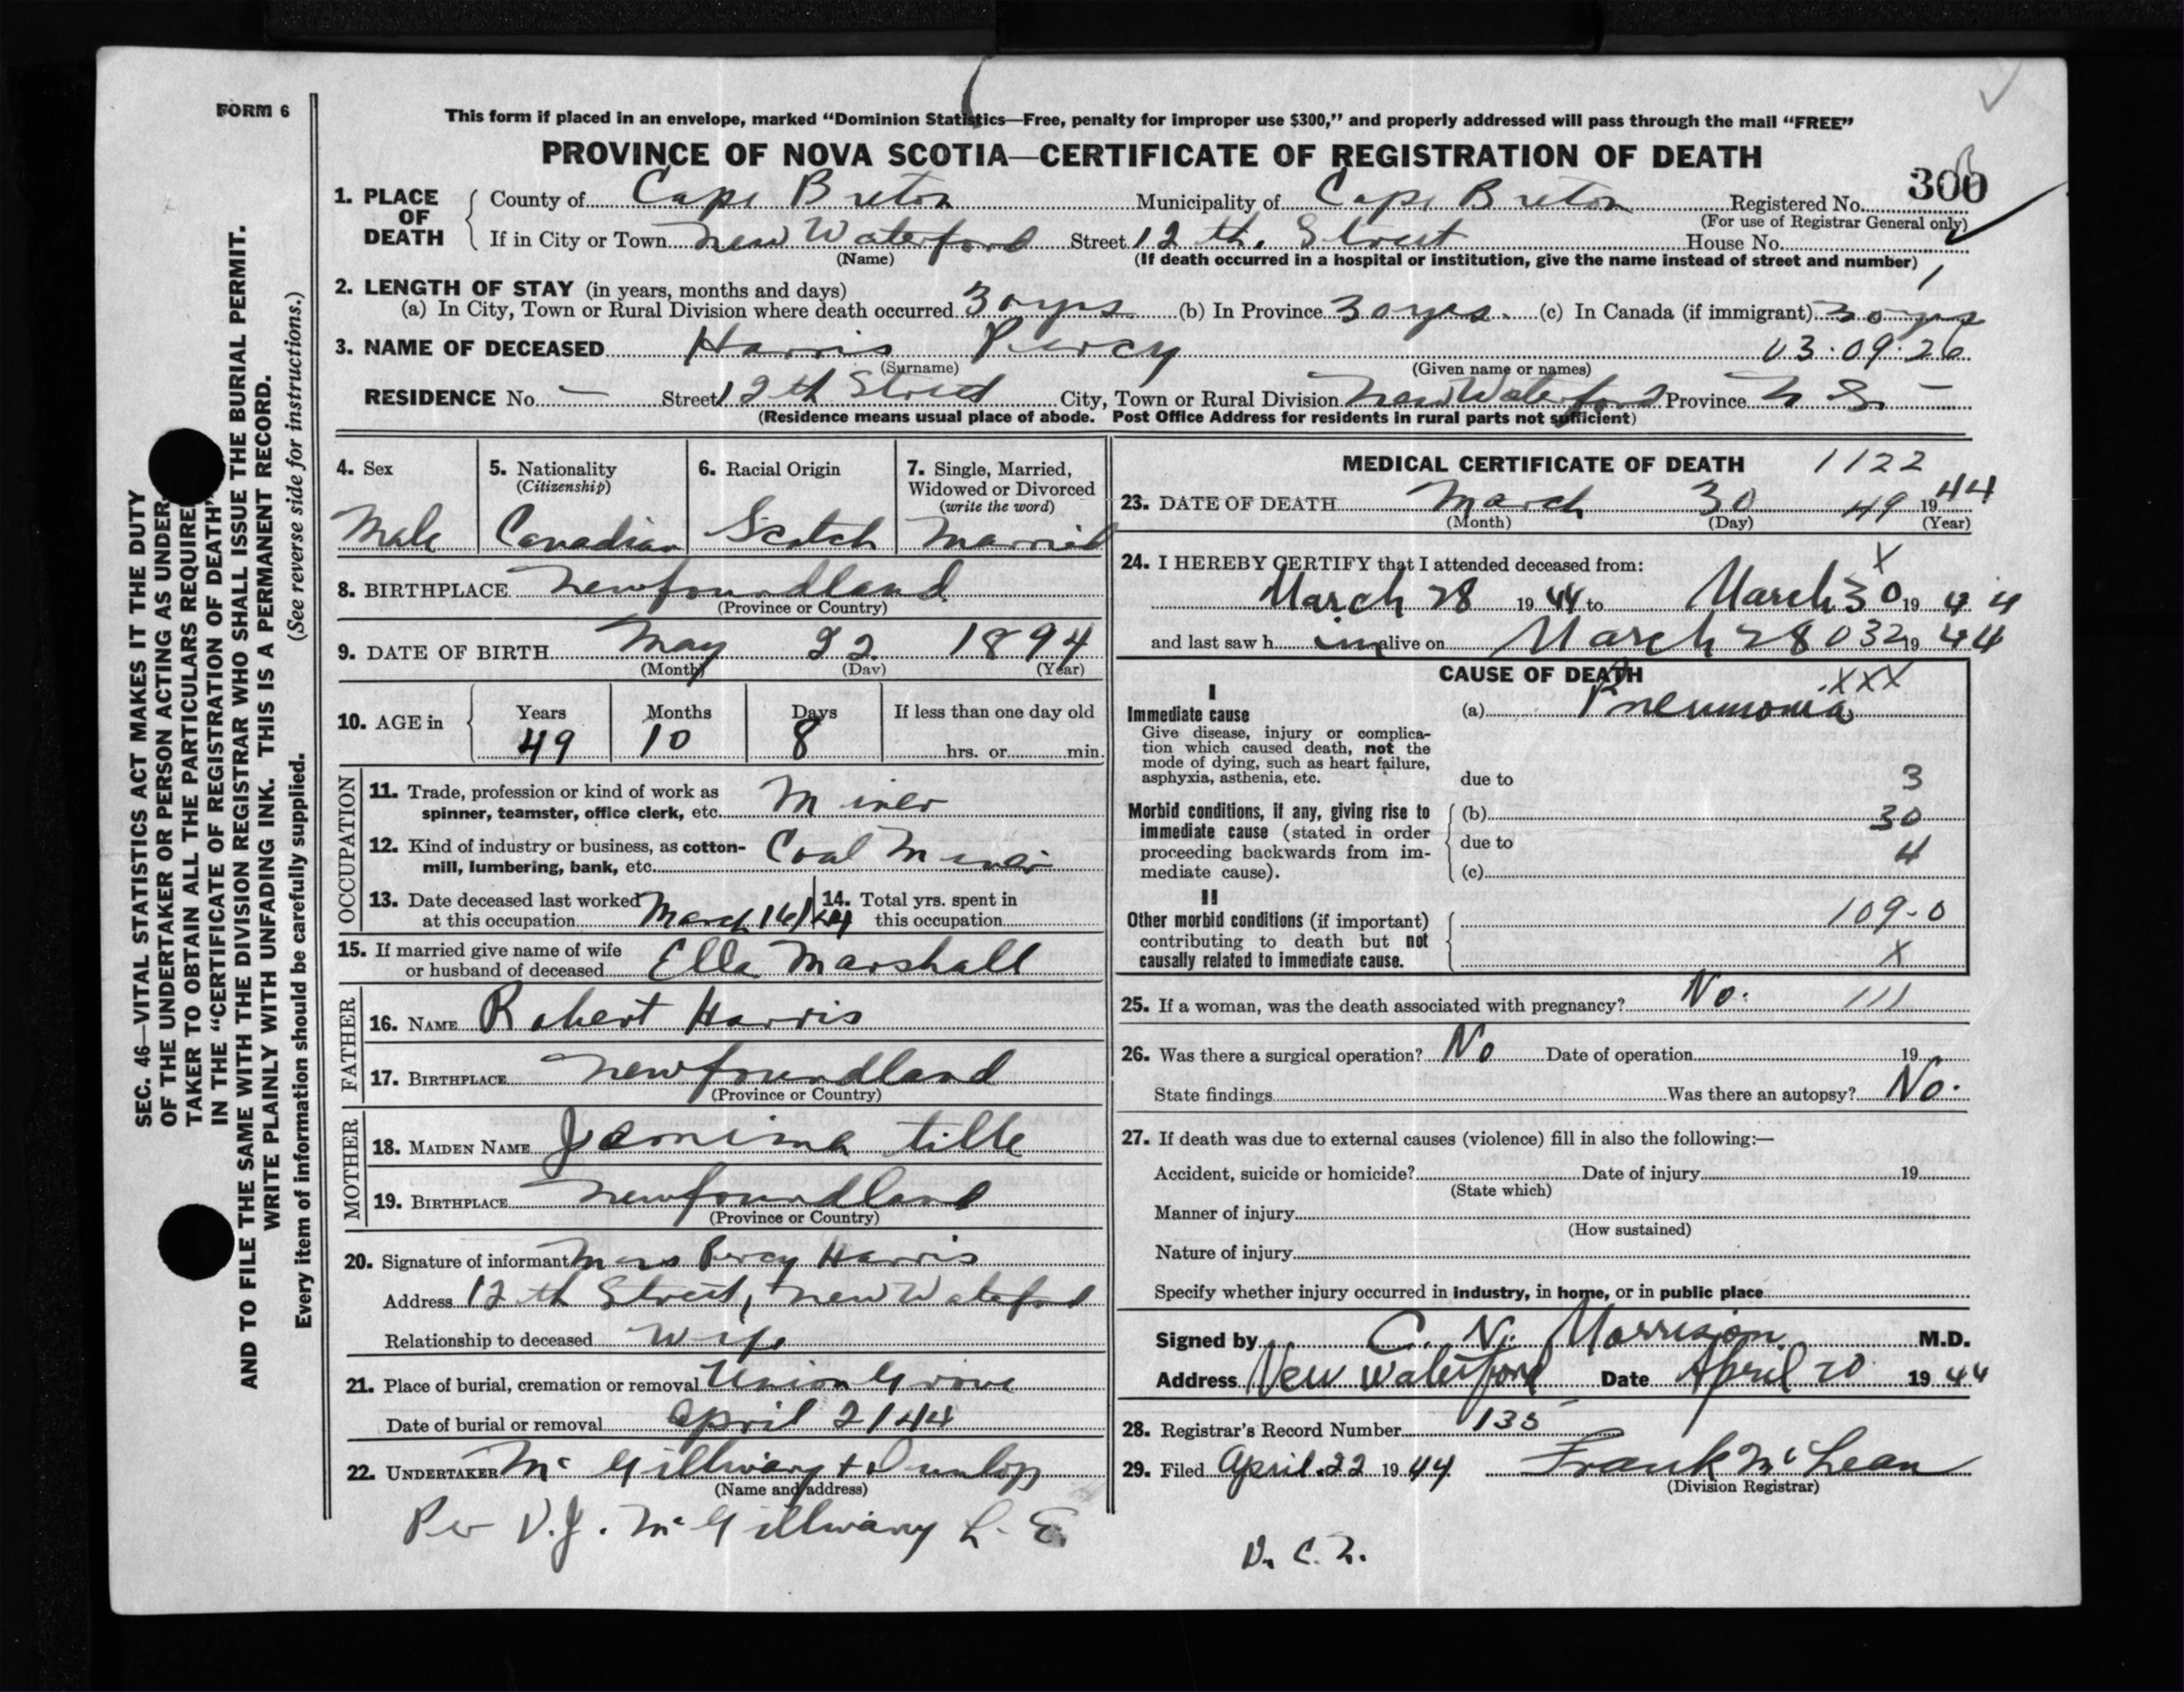 FORM 6
This form if placed in an envelope, marked “Dominion Statistics—Free, penalty for improper use $300,” and properly addressed will pass through the mail “FREE”
PROVINCE OF NOVA SCOTIA—CERTIFICATE OF REGISTRATION OF DEATH
300
1. PLACE OF DEATH
County of Cape Breton Municipality of Cape Breton Registered No.
(For use of Registrar General only)
If in City or Town New Waterford Street 12 th. Street House No.
(Name) (If death occurred in a hospital or institution, give the name instead of street and number)
2. LENGTH OF STAY (in years, months and days)
(a) In City, Town or Rural Division where death occurred 30 yrs (b) In Province 30 yrs. (c) In Canada (if immigrant) 30 yrs
3. NAME OF DECEASED Harris Percy 03·09·26
(Surname) (Given name or names)
RESIDENCE No. — Street 12th Street City, Town or Rural Division New Waterford Province N S. —
(Residence means usual place of abode. Post Office Address for residents in rural parts not sufficient)
4. Sex
Male
5. Nationality
(Citizenship)
Canadian
6. Racial Origin
Scotch
7. Single, Married,
Widowed or Divorced
(write the word)
Married
8. BIRTHPLACE Newfoundland
(Province or Country)
9. DATE OF BIRTH May 22 1894
(Month) (Day) (Year)
10. AGE in
Years Months Days If less than one day old
49 10 8 hrs. or min.
OCCUPATION
11. Trade, profession or kind of work as
spinner, teamster, office clerk, etc. Miner
12. Kind of industry or business, as cotton-
mill, lumbering, bank, etc. Coal
13. Date deceased last worked
at this occupation March 16/44
14. Total yrs. spent in
this occupation
15. If married give name of wife
or husband of deceased Ella Marshall
FATHER
16. NAME Robert Harris
17. BIRTHPLACE Newfoundland
(Province or Country)
MOTHER
18. MAIDEN NAME Jemima
19. BIRTHPLACE Newfoundland
(Province or Country)
20. Signature of informant Mrs Percy Harris
Address 12 th Street, New Waterford
Relationship to deceased Wife
21. Place of burial, cremation or removal Union Grove
Date of burial or removal April 2/44
22. UNDERTAKER Mc Gillivary + Dunlop
(Name and address)
Per V.J. Mc Gillivary L. E.
MEDICAL CERTIFICATE OF DEATH 1122
23. DATE OF DEATH March 30 49 1944
(Month) (Day) (Year)
24. I HEREBY CERTIFY that I attended deceased from: X
March 28 1944 to March 30 1944
and last saw h im alive on March 28 032 1944
CAUSE OF DEATH
XXX
I
Immediate cause
Give disease, injury or complica-
tion which caused death, not the
mode of dying, such as heart failure,
asphyxia, asthenia, etc.
(a) Pneumonia
due to 3
Morbid conditions, if any, giving rise to
immediate cause (stated in order
proceeding backwards from im-
mediate cause).
(b) 30
due to 4
(c)
II
Other morbid conditions (if important)
contributing to death but not
causally related to immediate cause.
109-0
X
25. If a woman, was the death associated with pregnancy? No. 111
26. Was there a surgical operation? No Date of operation 19
State findings Was there an autopsy? No.
27. If death was due to external causes (violence) fill in also the following:—
Accident, suicide or homicide? Date of injury 19
(State which)
Manner of injury
(How sustained)
Nature of injury
Specify whether injury occurred in industry, in home, or in public place
Signed by C. N. Morrison M.D.
Address New Waterford Date April 20 1944
28. Registrar's Record Number 135
29. Filed April 22 1944 Frank McLean
(Division Registrar)
SEC. 46—VITAL STATISTICS ACT MAKES IT THE DUTY
OF THE UNDERTAKER OR PERSON ACTING AS UNDER-
TAKER TO OBTAIN ALL THE PARTICULARS REQUIRE
IN THE “CERTIFICATE OF REGISTRATION OF DEATH”
AND TO FILE THE SAME WITH THE DIVISION REGISTRAR WHO SHALL ISSUE THE BURIAL PERMIT.
WRITE PLAINLY WITH UNFADING INK. THIS IS A PERMANENT RECORD.
Every item of information should be carefully supplied. (See reverse side for instructions.)